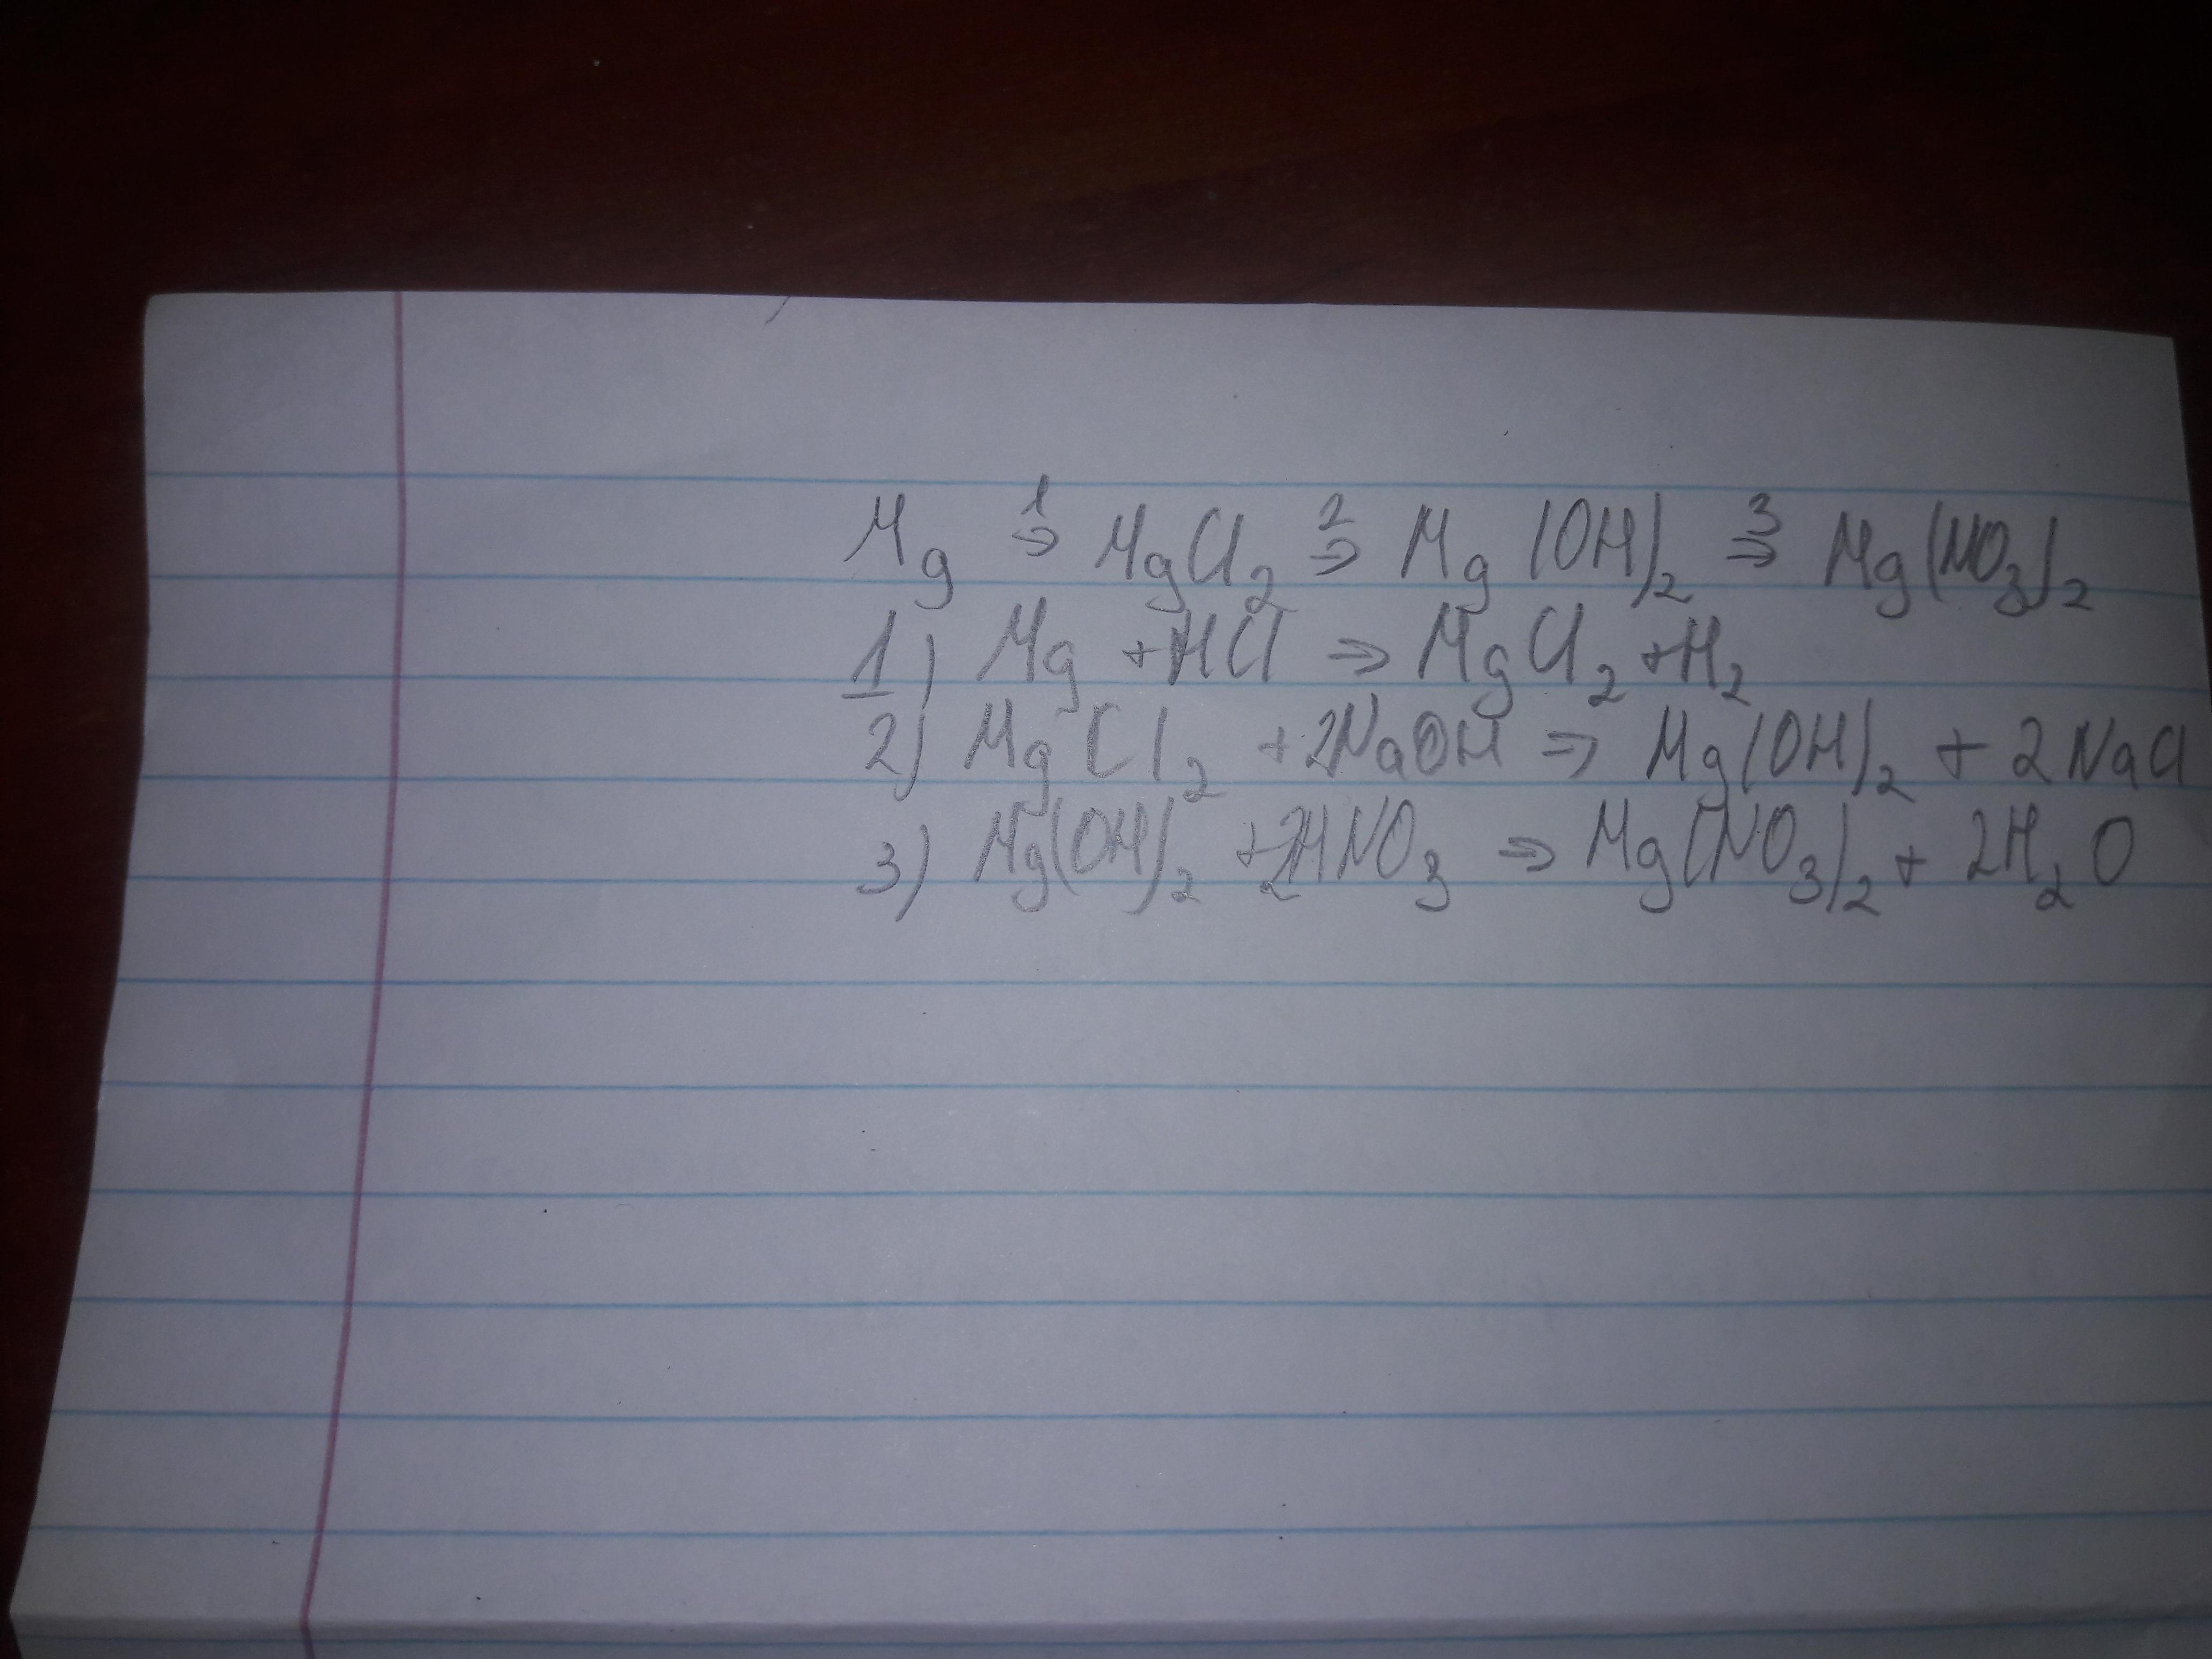 Mg ⇒¹ MgCl₂ ⇒² Mg(OH)₂ ⇒³ Mg(NO₃)₂
1) Mg + HCl ⇒ MgCl₂ + H₂
2) MgCl₂ + 2NaOH ⇒ Mg(OH)₂ + 2NaCl
3) Mg(OH)₂ + 2HNO₃ ⇒ Mg(NO₃)₂ + 2H₂O